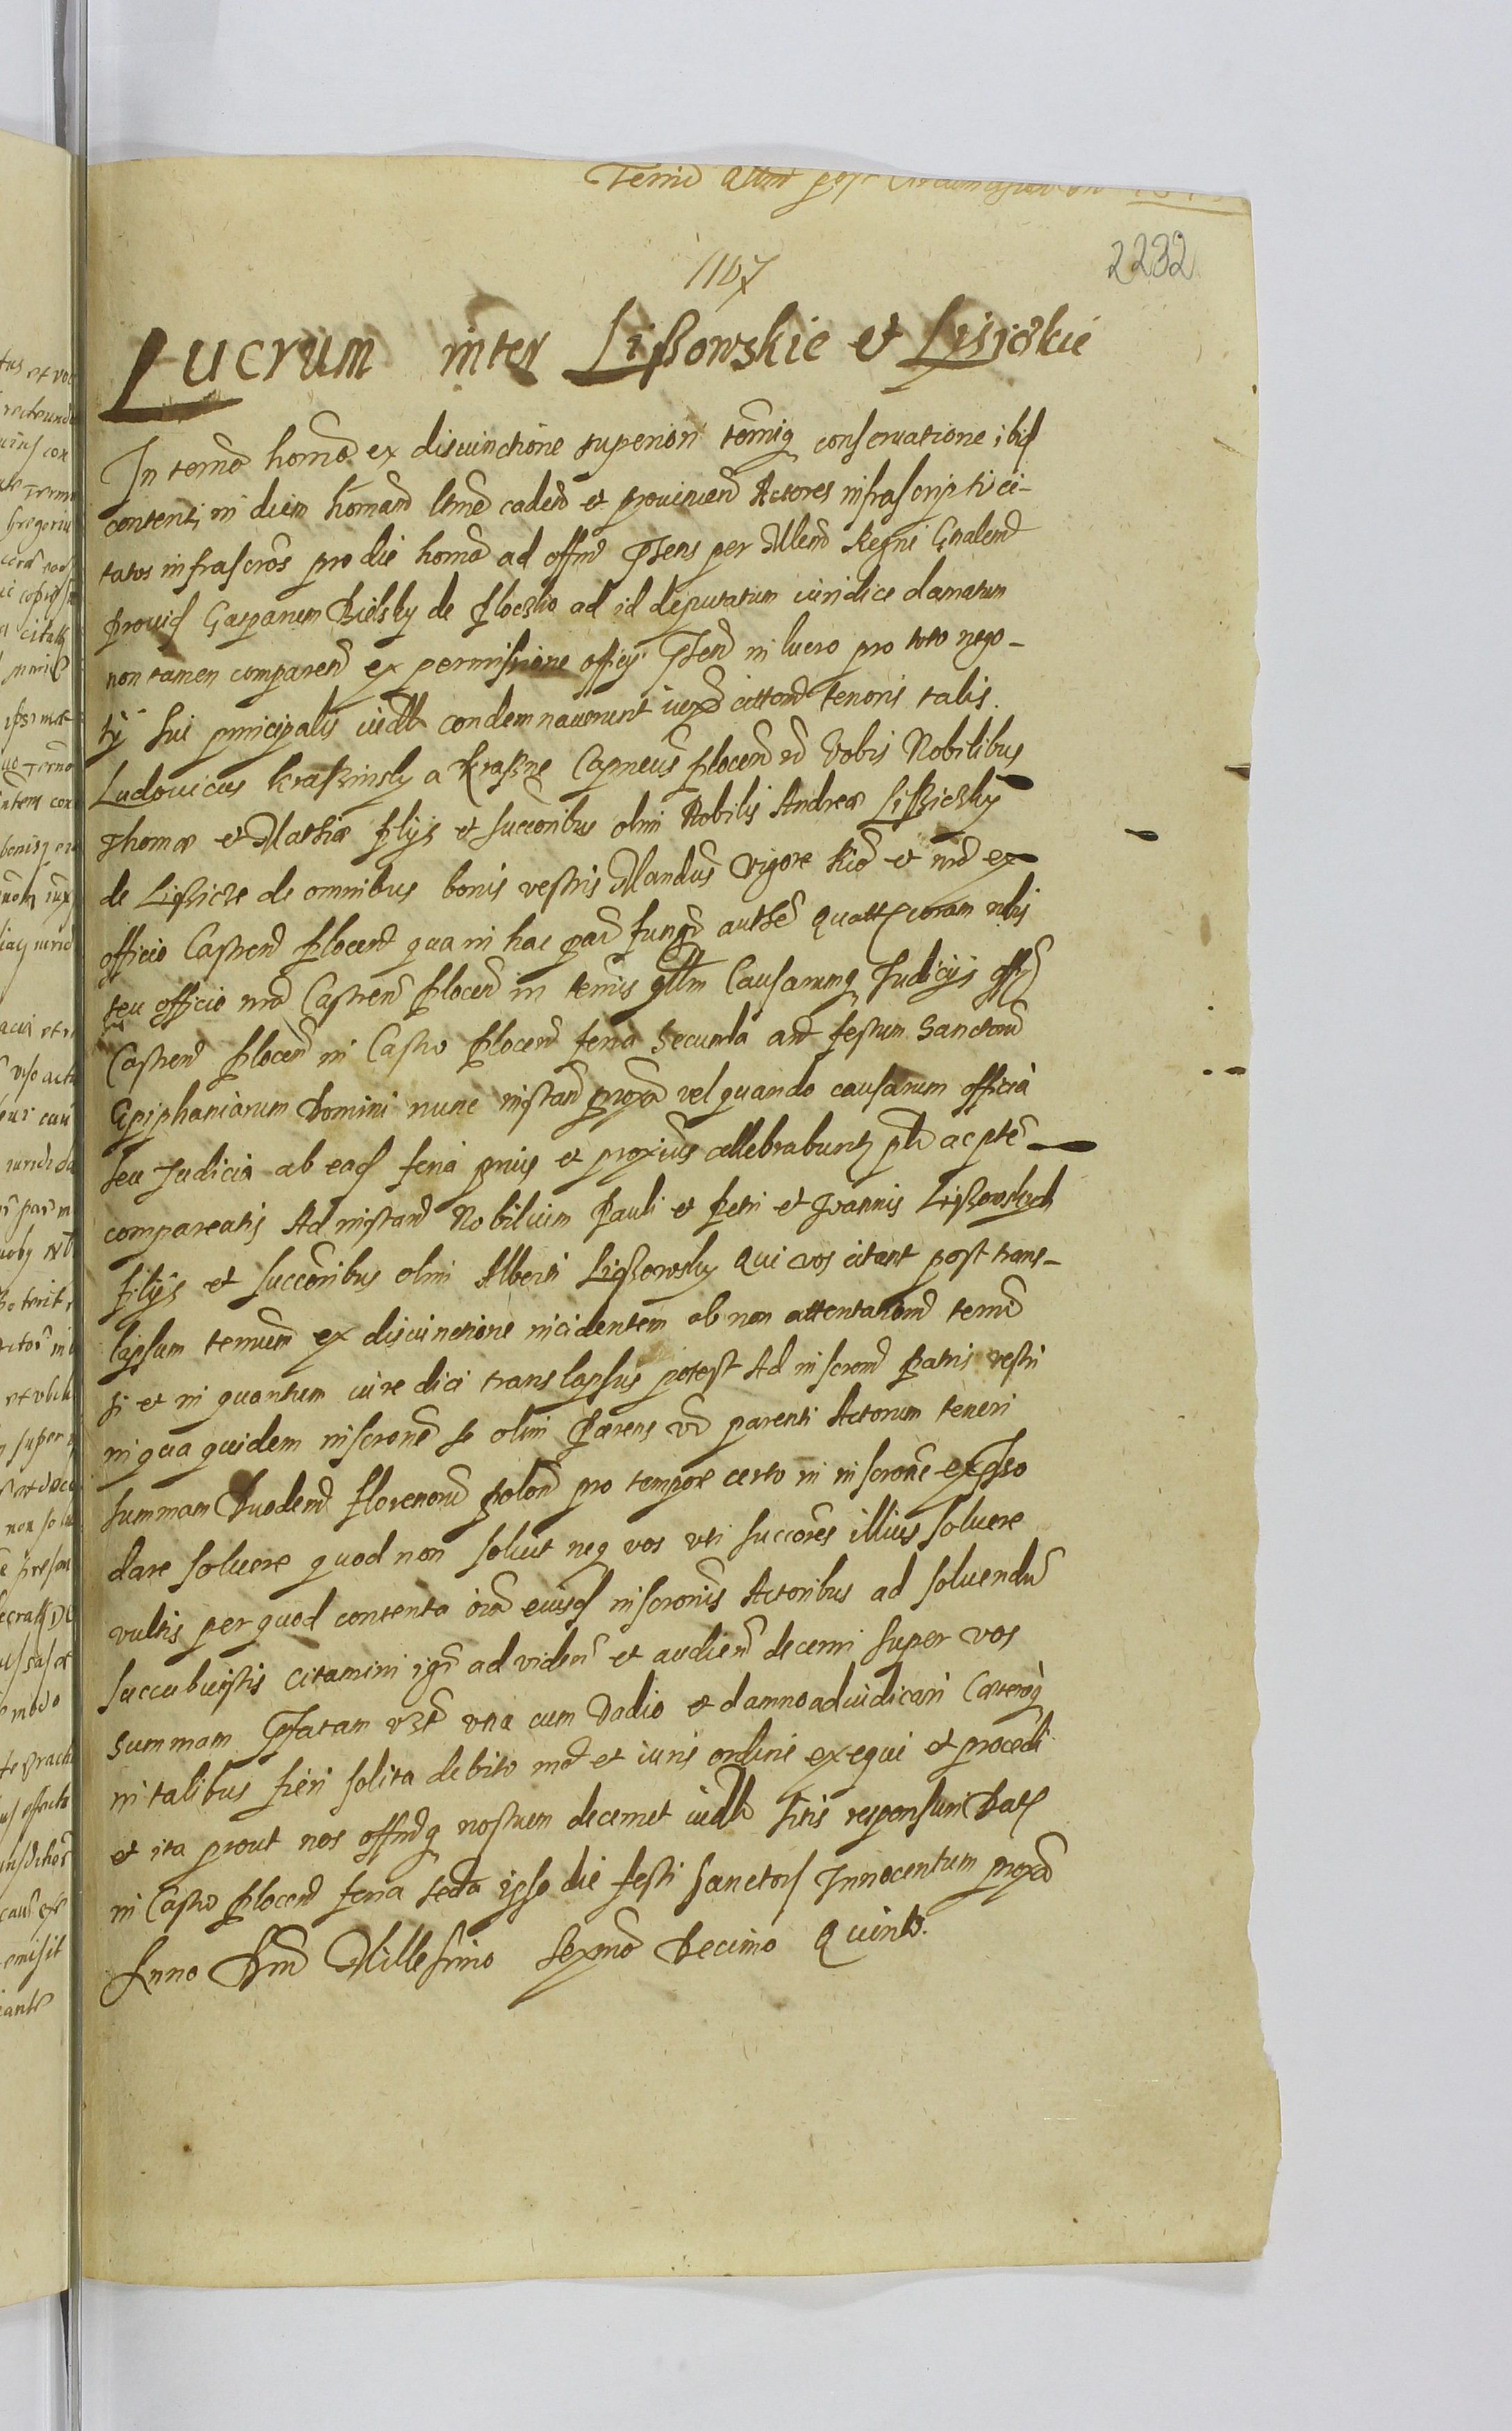 Termi post
1167
2232
Lucrum inter Lißowskie et Lyßiczkie
In termō homō ex disiunctione superiori termiq conseruatione ibid
content, in diem homañ ltme caden et prouenien Actores infrascripti ci-
tatos infrascros pro die homo ad offm Pñs per Mlem Regni Gnalem
prouid Gasparum Bielsky de Ploczko ad id deputatum iuridice clamatum
non tamen comparen ex permissione officij Pñt in lucro pro toto nego-
tÿ sui principalis condemnauerunt iuxa cittom tenoris talis.
Ludouicus Kraßinsky a Kraßne Capneus Plocen Vobis Nobilibus
Thomæ et Mathiæ filijs et succoribus olim Nobilis Andreæ Lißiczky
de Lißicze de omnibus bonis vestris Mandus vigore Rio et mo ex
officio Castren Plocen qua in hac par fungr authe Quatt coram nobis
seu officio nro Castren Plocen in termis qlm Causarumq Judicijs
Castren Plocen in Castro Plocen feria Secunda an festum Sanctoru
Epiphaniarum Domini nunc instan proxa vel quando causarum officia
seu Judicia ab ead feria prius et proxius cellebrabuntr plr ac pte
compareatis Ad instan Nobilium Pauli et Petri et Joannis Lißowskych
filijs et succoribus olim Alberti Lißowsky Qui vos citant post trans-
lapsum termum ex disiunctione incidentem ob non attentationem termi
si et in quantum iure dici translapsus potest Ad inscrom Patris vestri
in qua quidem inscrone se olim Parens vr parenti Actorum teneri
summam Duodem florenoru polon pro tempore certo in inscrone expsso
dare soluere quod non soluit neq vos uti succores illius soluere
vultis per quod contenta oia eiusd inscronis Actoribus ad soluendu
succubuistis Citamini igr ad viden et audien decerni super vos
summam Pfatam una cum Vadio et damno adiudicari Cæteraq
in talibus fieri solita debito mo et iuris ordine exequi et procedi
et ita prout nos offmq nostrum decernet sitis responsuri Dat
in Castro Plocen feria seda ipso die festi Sanctor Innocentum proxa
Anno Dni Millesimo Sexmo Decimo Quinto.